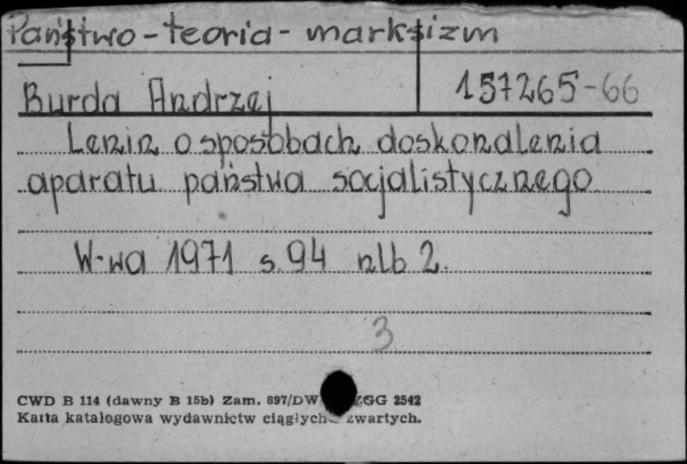 Państwo - teoria - marksizm
Burda Andrzej 157265-66
Lenin o sposobach doskonalenia
aparatu państwa socjalistycznego
W-wa 1971 s. 94 nlb 2.
3
CWD B 114 (dawny B 15b) Zam. 897/DW GG 2542
Karta katalogowa wydawnictw ciągłych zwartych.